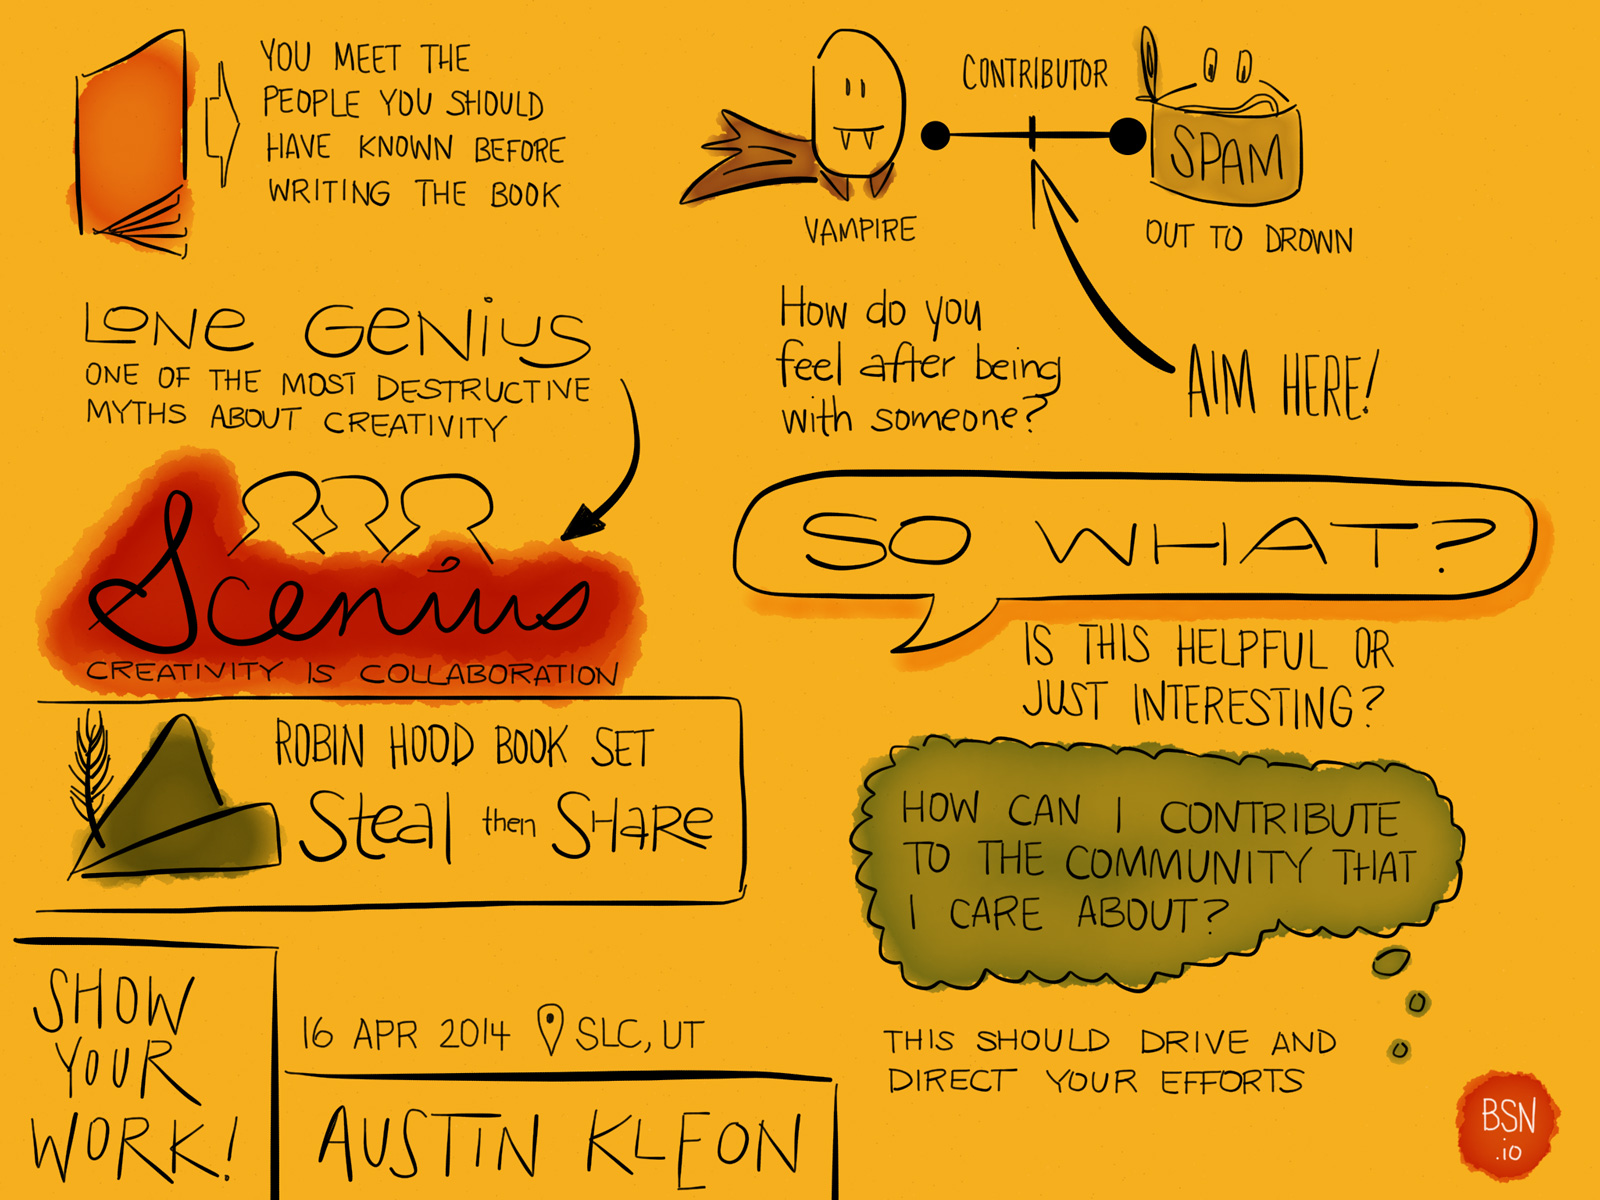 YOU MEET THE
PEOPLE YOU SHOULD
HAVE KNOWN BEFORE
WRITING THE BOOK
LONE GENIUS
ONE OF THE MOST DESTRUCTIVE
MYTHS ABOUT CREATIVITY
Scenius
CREATIVITY IS COLLABORATION
ROBIN HOOD BOOK SET
Steal then SHaRe
SHOW
YOUR
WORK!
16 APR 2014 SLC, UT
AUSTIN KLEON
CONTRIBUTOR
SPAM
VAMPIRE
OUT TO DROWN
How do you
feel after being
with someone?
AIM HERE!
SO WHAT?
IS THIS HELPFUL OR
JUST INTERESTING?
HOW CAN I CONTRIBUTE
TO THE COMMUNITY THAT
I CARE ABOUT?
THIS SHOULD DRIVE AND
DIRECT YOUR EFFORTS
BSN
.io